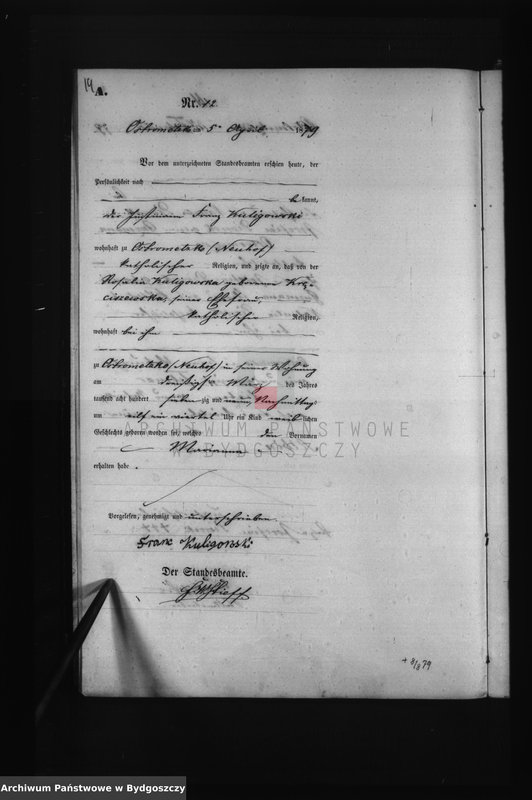 19
A.
Nr. 12
Ostrometzko 5ten April 1879
Vor dem unterzeichneten Standesbeamten erschien heute, der
Persönlichkeit nach
bekannt,
der Franz Kuligowski
wohnhaft zu Ostrometzko (Neuhof)
katholischer Religion, und zeigte an, daß von der
Rosalia Kuligowska geborenen
seiner Ehefrau,
katholischer Religion,
wohnhaft bei ihm
zu Ostrometzko (Neuhof) in seiner Wohnung
am dreißigsten März des Jahres
tausend acht hundert siebenzig und neun Nachmittags
um elf ein viertel Uhr ein Kind weiblichen
Geschlechts geboren worden sei, welches den Vornamen
Marianna
erhalten habe.
Vorgelesen, genehmigt und unterschrieben
Franz Kuligowski
Der Standesbeamte.
+ 8/3 79
ARCHIWUM PAŃSTWOWE
W BYDGOSZCZY
Archiwum Państwowe w Bydgoszczy